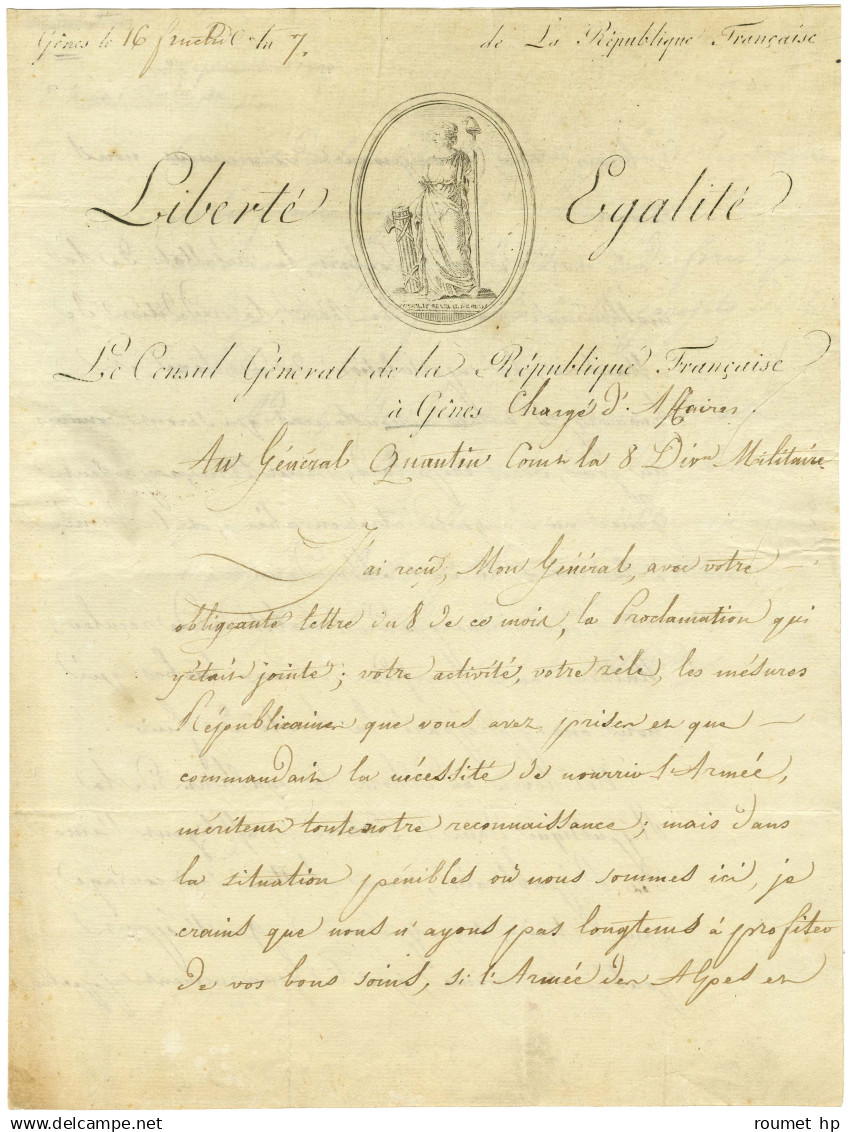 Gênes le 16 fructid. an 7. de La République Française
Liberté Egalité
Le Consul Général de la République Française
à Gênes Chargé d'Affaires.
Au Général Quantin Com.t la 8 Div.n Militaire
J'ai reçu, Mon Général, avec votre
obligeante lettre du 8 de ce mois, la Proclamation qui
y était jointe; votre activité, votre zèle, les mésures
Républicaines que vous avez prises et que
commandait la nécessité de nourrir l'Armée,
méritent toute notre reconnaissance; mais dans
la situation pénibles où nous sommes ici, je
crains que nous n'ayons pas longtems à profiter
de vos bons soins, si l'Armée des Alpes et
roumet hp
www.delcampe.net